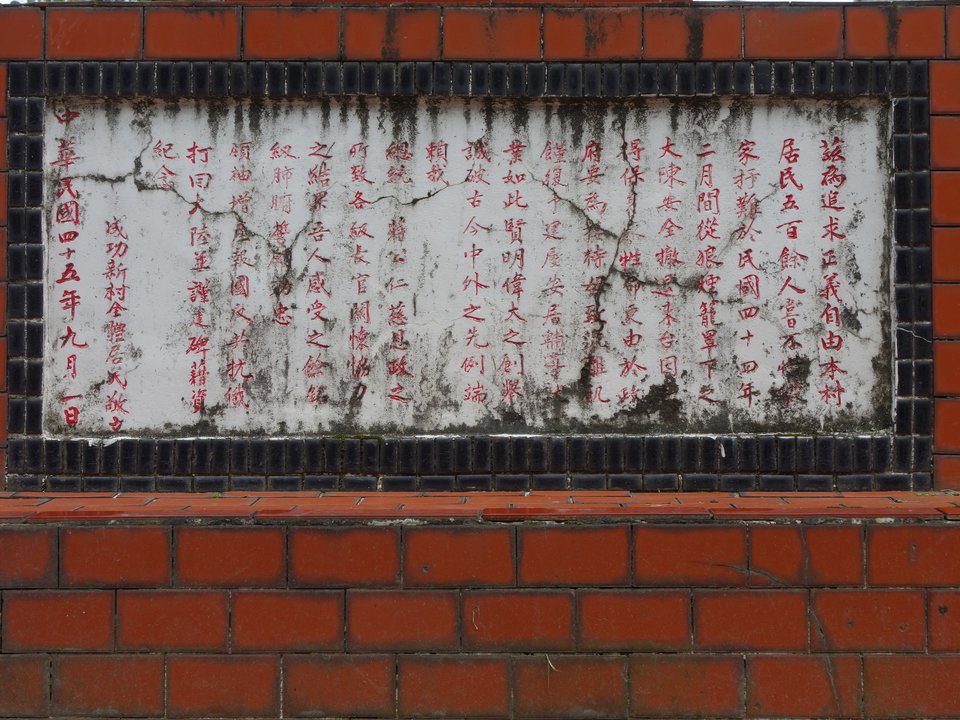 該為追求正義自由本村
居民五百餘人嘗不
家抒難於民國四十四年
二月間從狼煙籠罩下之
大陳安全撤退來台因
得保 牲命更由於政
府妥為
僅
業如此賢明偉大之創舉
誠破古今中外之先例端
賴我
總統 蔣公仁慈愚政之
所致各級長官關懷協
之結果吾人感受之餘銘
級肺腑 忠
領袖增產報國反共抗俄
打回大陸並謹建碑藉資
紀念
成功新村全體居民敬立
中華民國四十五年九月一日